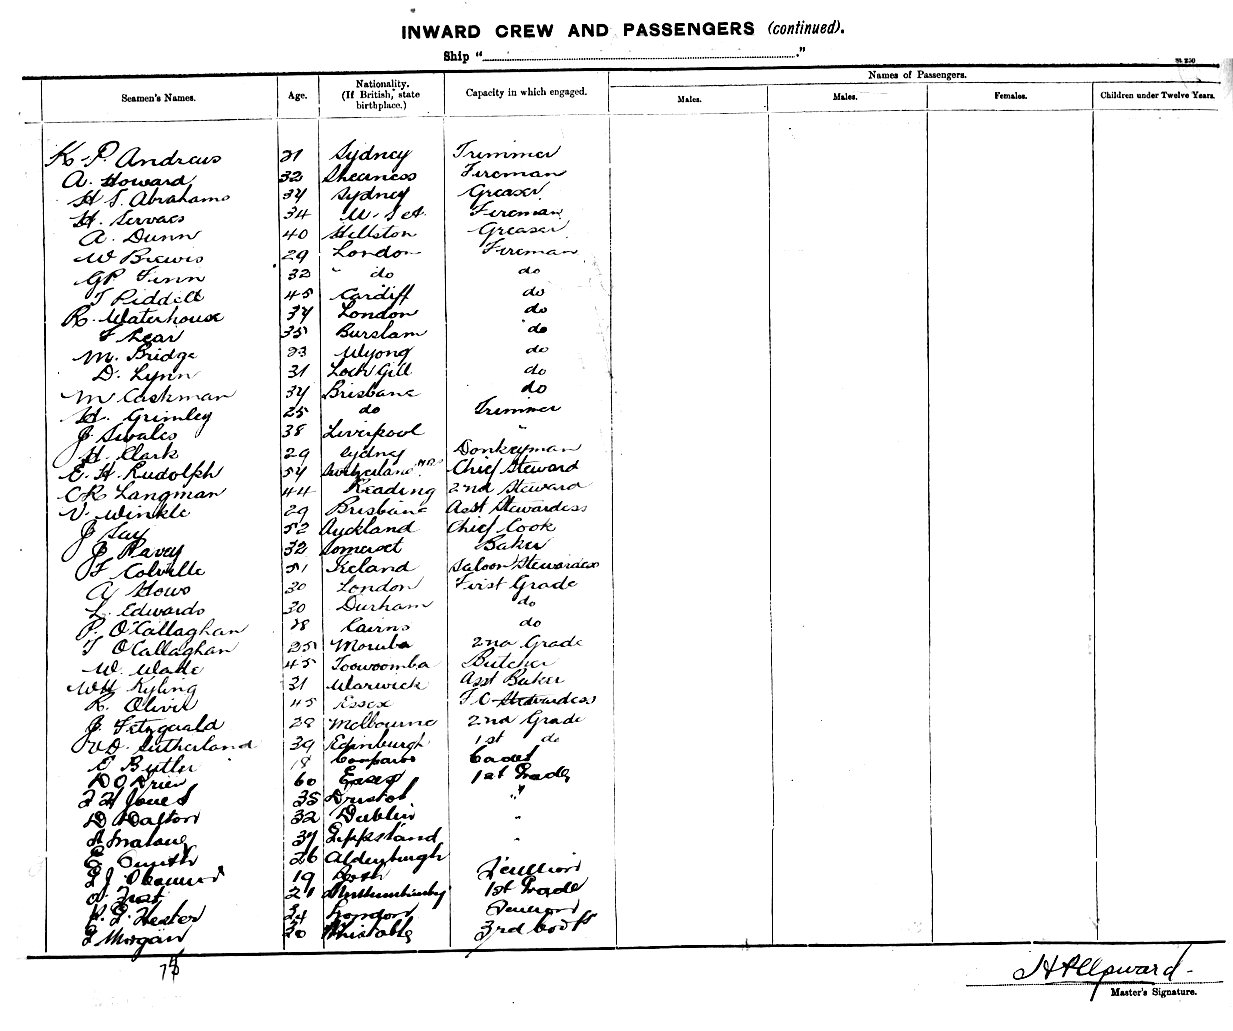 INWARD CREW AND PASSENGERS (continued).
Ship " "
Seamen's Names. Age. Nationality. (If British, state birthplace.) Capacity in which engaged. Names of Passengers.
Males. Males. Females. Children under Twelve Years.
K. P. Andrews 21 Sydney Trimmer
A. Howard 32 Sheerness Fireman
H S. Abrahams 34 Sydney Greaser
H. Servaes 34 U. S of A. Fireman
A. Dunn 40 Hillston Greaser
W Brewis 29 London Fireman
GP Finn 32 " do do
T Riddell 45 Cardiff do
R. Waterhouse 34 London do
F Lear 35 Burslem do
M. Bridge 23 Wyong do
D. Lynn 31 Loch Gill do
M Cashman 34 Brisbane do
H. Grimley 25 do Trimmer
J. Swales 38 Liverpool "
H. Clark 29 Sydney Donkeyman
E. H. Rudolph 54 Switzerland Chief Steward
CR Langman 44 Reading 2nd Steward
V. Winkle 29 Brisbane Asst Stewardess
J Lay 52 Auckland Chief Cook
J Pavey 32 Somerset Baker
F Colville 51 Ireland Saloon Stewardess
A Hows 30 London First Grade
L. Edwards 30 Durham do
P. O'Callaghan 28 Cairns do
T O'Callaghan 25 2nd Grade
W. Wade 45 Toowoomba Butcher
WH Kyling 31 Warwick Asst Baker
R. Oliver 45 Essex T.C. Stewardess
J. Fitzgerald 28 Melbourne 2nd Grade
WD. Sutherland 39 Edinburgh 1st do
E Butler 18 Cadet
D O'Brien 60 Essex 1st Grade
F H Jones 35 Bristol "
D Dalton 32 Dublin "
A Malony 37 Gippsland "
E Smyth 26 Aldeyburgh
19 Perth
A Frost 21 1st Grade
P. G. Hester 24 London
G Morgan 20 Whistable 3rd Cook
78
H P Upward
Master's Signature.